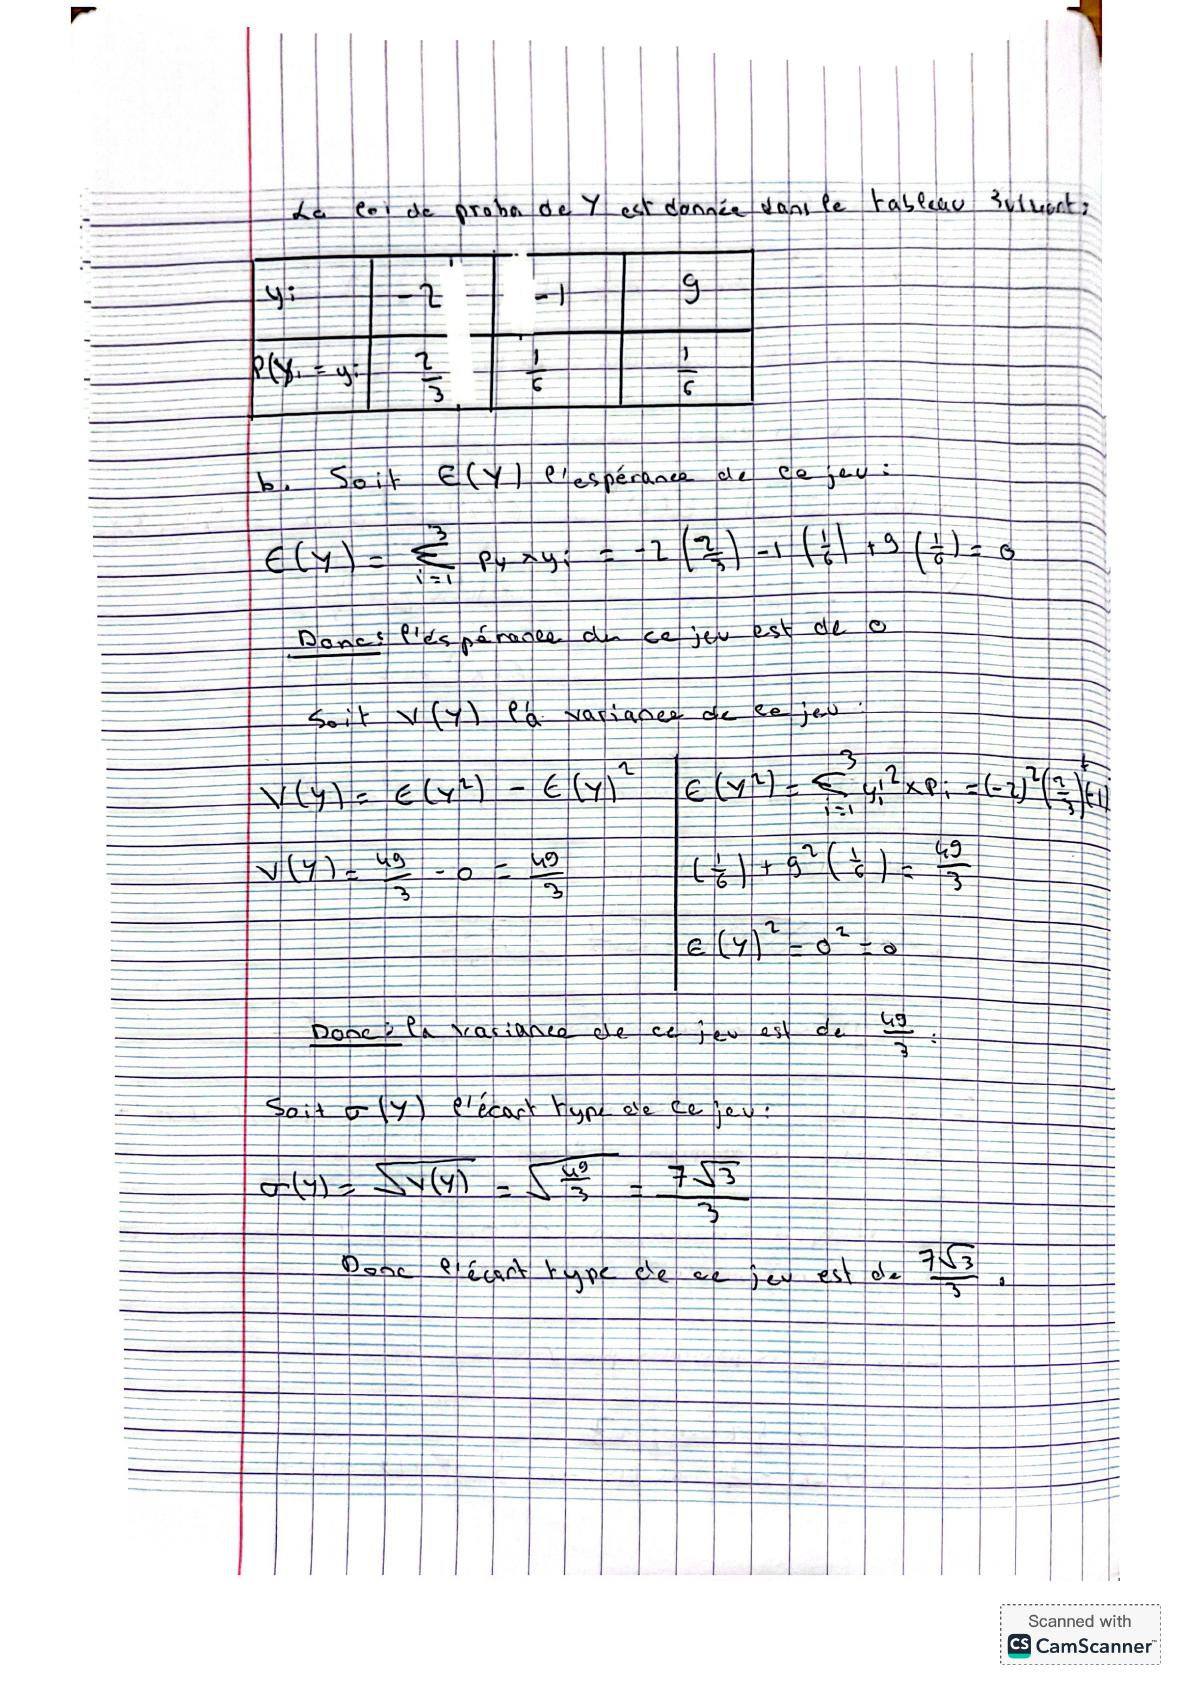 La loi de proba de Y est donnée dans le tableau suivant:
yi -2 -1 9
P(Yi = yi 2/3 1/6 1/6
b. Soit E(Y) l'espérance de ce jeu:
E(Y) = Σ_{i=1}^{3} Pi × yi = -2 (2/3) -1 (1/6) + 9 (1/6) = 0
Donc: l'éspérance du ce jeu est de 0
Soit V(Y) la variance de ce jeu:
V(Y) = E(Y²) - E(Y)²
V(Y) = 49/3 - 0 = 49/3
E(Y²) = Σ_{i=1}^{3} yi² × Pi = (-2)² (2/3) + (-1)
(1/6) + 9² (1/6) = 49/3
E(Y)² = 0² = 0
Donc: la variance de ce jeu est de 49/3.
Soit σ(Y) l'écart type de ce jeu:
σ(Y) = √V(Y) = √49/3 = 7√3/3
Donc l'écart type de ce jeu est de 7√3/3.
Scanned with
CS CamScanner